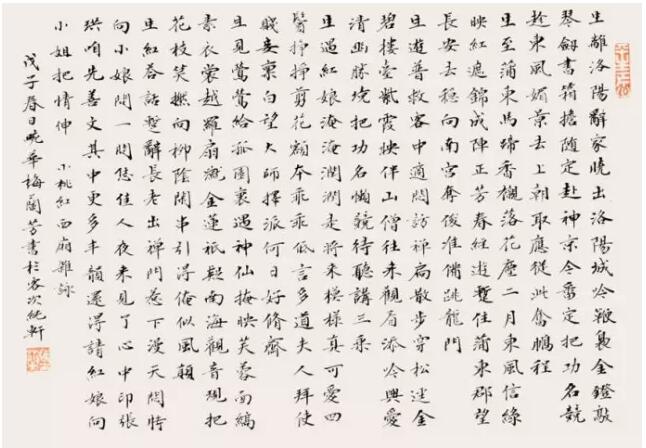 生離洛陽辭家曉出洛陽城吟鞭裊金鐙敲
琴劍書箱擔隨定赴神京今番定把功名競
趁東風媚景去上朝取應從此奮鵬程
生至蒲東馬蹄香襯落花塵二月東風信綠
映紅遮錦成陣正芳春經遊暫住蒲東郡望
長安去穩向南宮奪俊准備跳龍門
生遊普救客中適悶訪禪扃散步穿松逕金
碧樓臺紫霞映伴山僧往來觀看添吟興愛
清幽勝境把功名懶競待聽講三乘
生遇紅娘淹淹潤潤走將來模樣真可愛四
鬢掙掙剪花額本乖乖低言多道夫人拜使
賤妾稟白望大師擇派何日好脩齋
生見鶯鶯給孤園裏遇神仙掩映芙蓉面縞
素衣裳越羅扇蹙金蓮祇疑南海觀音現把
花枝笑撚向柳陰閒串引得俺似風顛
生紅荅話暫辭長老出禪門惹下漫天悶特
向小娘問一問您佳人夜來見了心中印張
珙咱先善文其中更多丰韻還得請紅娘向
小姐把情伸 小桃紅西廂雜詠
戊子春日畹華梅蘭芳書於客次純軒